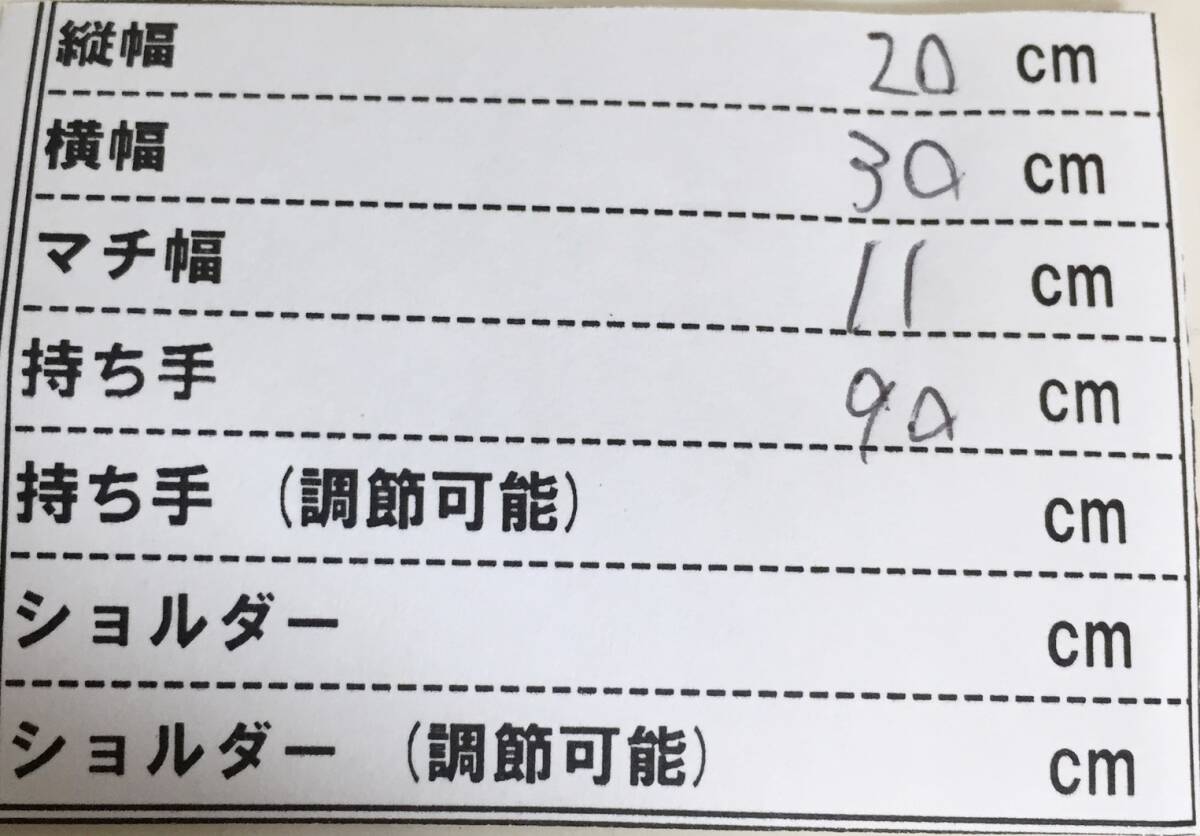 縦幅 20 cm
横幅 30 cm
マチ幅 11 cm
持ち手 90 cm
持ち手 (調節可能) cm
ショルダー cm
ショルダー (調節可能) cm